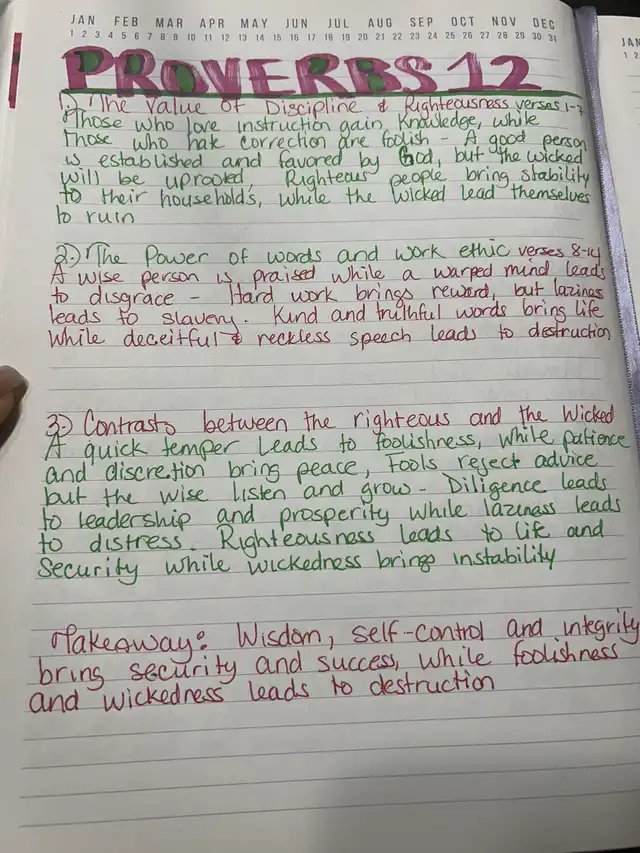 JAN FEB MAR APR MAY JUN JUL AUG SEP OCT NOV DEC
1 2 3 4 5 6 7 8 9 10 11 12 13 14 15 16 17 18 19 20 21 22 23 24 25 26 27 28 29 30 31
JAN
1 2
PROVERBS 12
1.) The Value of Discipline & Righteousness verses 1-7
Those who love instruction gain Knowledge, while
Those who hate correction are foolish - A good person
is established and favored by God, but the wicked
will be uprooted, Righteous people bring stability
to their household's, while the wicked lead themselves
to ruin
2.) The Power of words and work ethic verses 8-14
A wise person is praised while a warped mind leads
to disgrace - Hard work brings reward, but laziness
leads to slavery. Kind and truthful words bring life
while deceitful & reckless speech leads to destruction
3.) Contrasts between the righteous and the Wicked
A quick temper leads to foolishness, while patience
and discretion bring peace, Fools reject advice
but the wise listen and grow - Diligence leads
to leadership and prosperity while laziness leads
to distress. Righteousness leads to life and
Security while wickedness brings instability
Takeaway: Wisdom, self-control and integrity
bring security and success, while foolishness
and wickedness leads to destruction